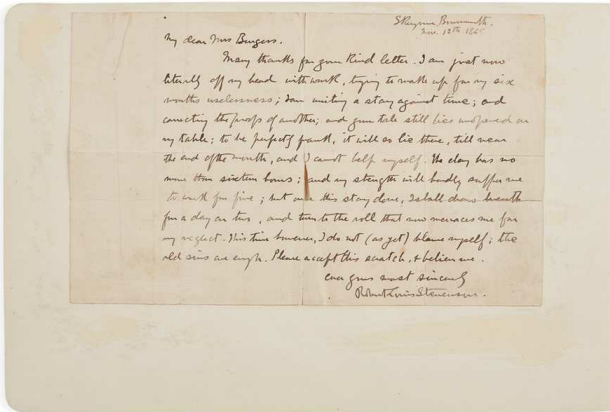 Skerryvore, Bournemouth.
Nov. 12th 1885
My dear Mrs Burgess.
Many thanks for your kind letter. I am just now
literally off my head with work, trying to make up for my six
months uselessness; I am writing a story against time; and
correcting the proofs of another; and your tale still lies unopened on
my table; to be perfectly frank, it will so lie there, till near
the end of the month, and I cannot help myself. The day has no
more than sixteen hours; and my strength will hardly suffer me
to work for five; but once this story done, I shall draw breath
for a day or two, and turn to the roll that now menaces me for
my neglect. This time however, I do not (as yet) blame myself; the
old sins are enough. Please accept this scratch, & believe me.
ever yours most sincerely
Robert Louis Stevenson.